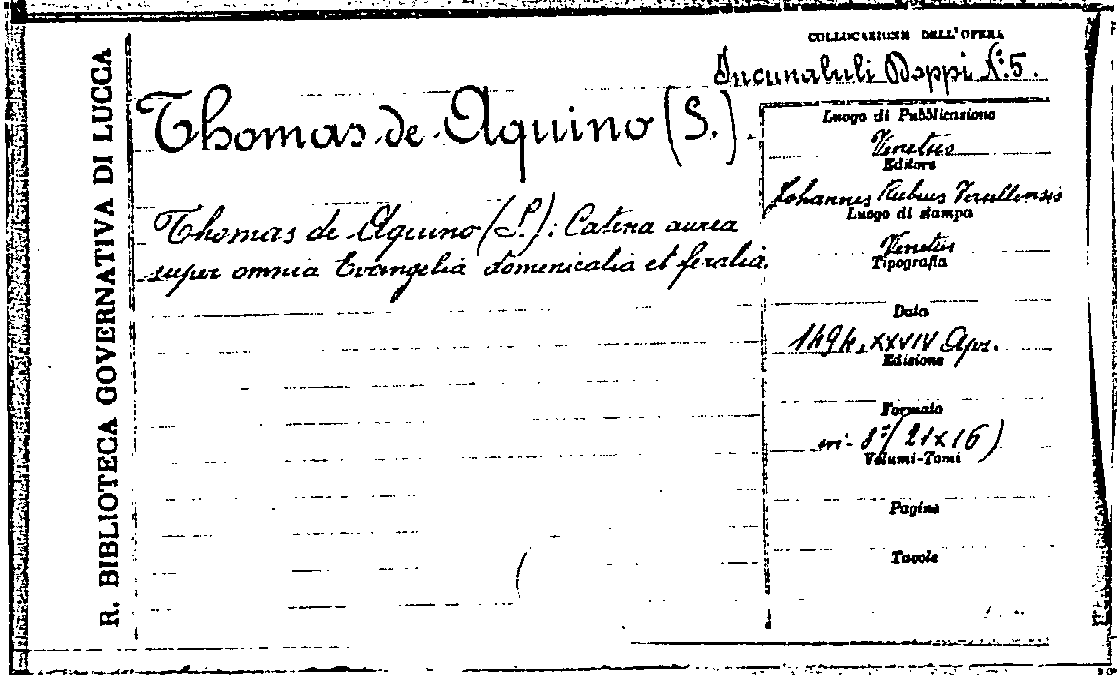 R. BIBLIOTECA GOVERNATIVA DI LUCCA
COLLOCAZIONE DELL'OPERA
Incunaluli Doppi N.º 5.
Thomas de Aquino (S.).
Thomas de Aquino (S.): Catena aurea
super omnia Evangelia domenicalia et feralia.
Luogo di Pubblicazione
Venetiis
Editore
Johannes Rubeus Vercellensis
Luogo di stampa
Venetiis
Tipografia
Data
1494, XXVIV Apr.
Edizione
Formato
in-8º (21x16)
Volumi-Tomi
Pagine
Tavole